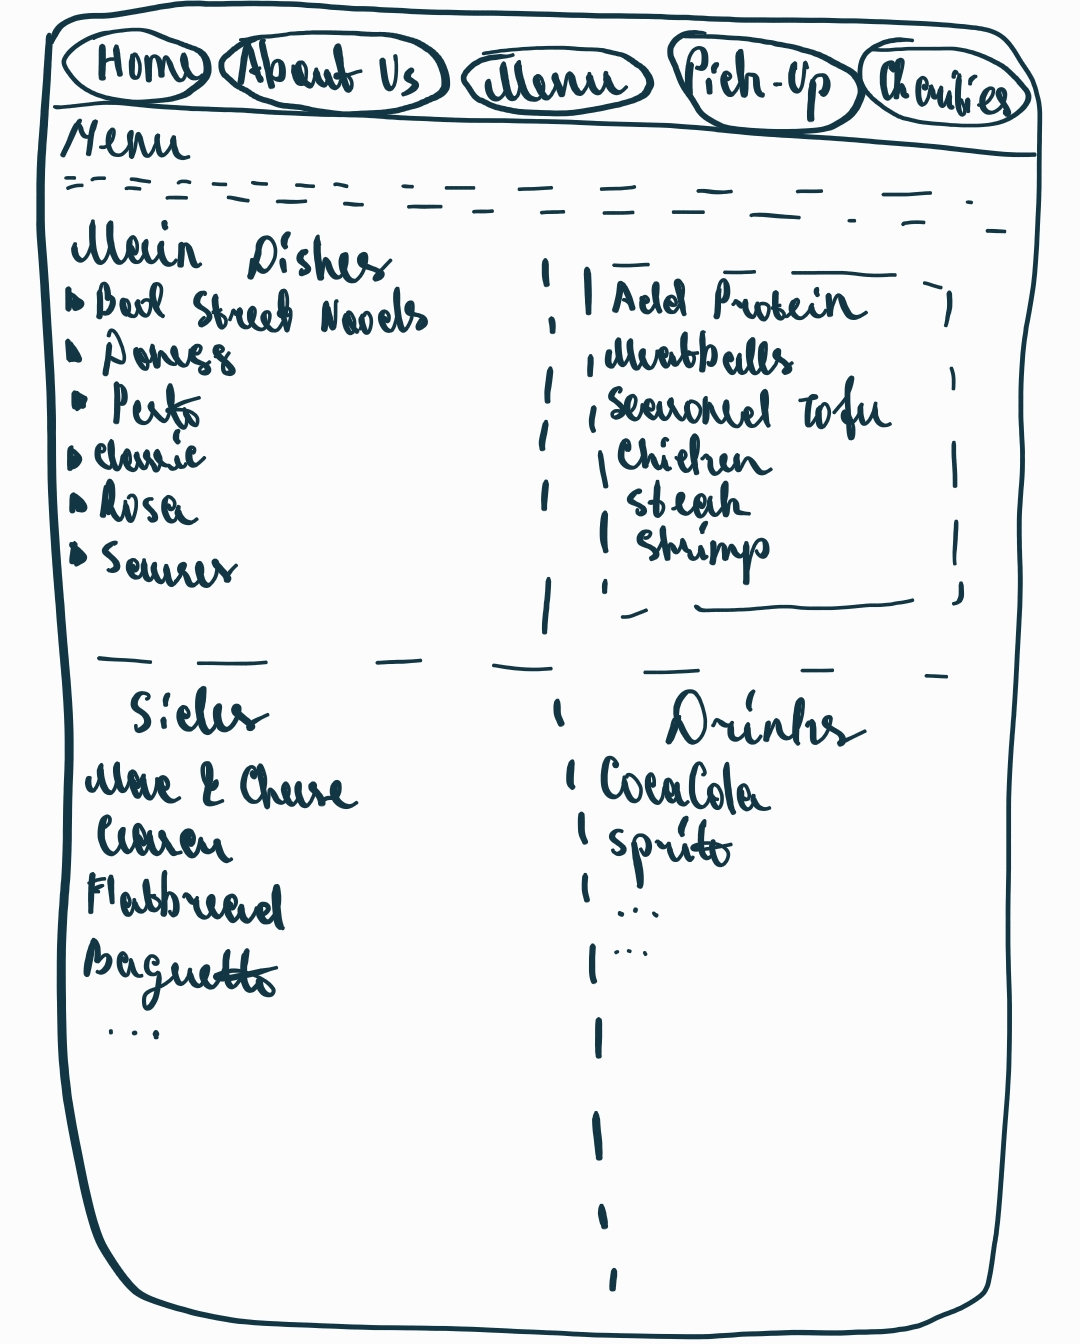 Home About Us Menu Pick-Up Charities
Menu
Main Dishes
Bad Street Noods
Pesto
Classic
Rosa
Sauses
Add Protein
Meatballs
Seasoned Tofu
Chicken
Steak
Shrimp
Sides
Mac & Cheese
Flatbread
Baguette
...
Drinks
CocaCola
Sprite
...
...